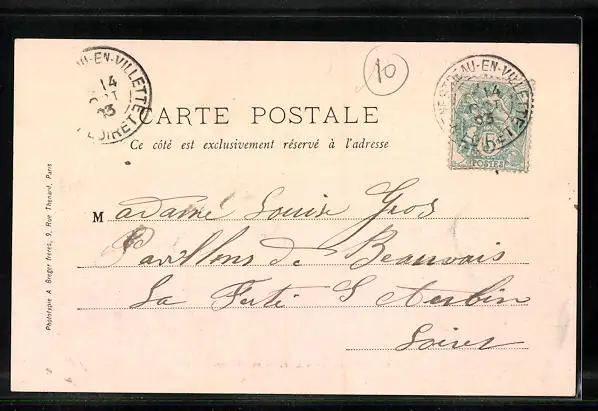 AU-EN-VILLETTE
14
OCT
03
LOIRET
10
VERDEAU-EN-VILLETTE
14
OCT
03
LOIRET
5
POSTES
CARTE POSTALE
Ce côté est exclusivement réservé à l'adresse
Madame Louise Gros
Pavillons de Beauvais
La Ferté St Aubin
Loiret
Phototypie A Breger frères; 9, Rue Thenard, Paris